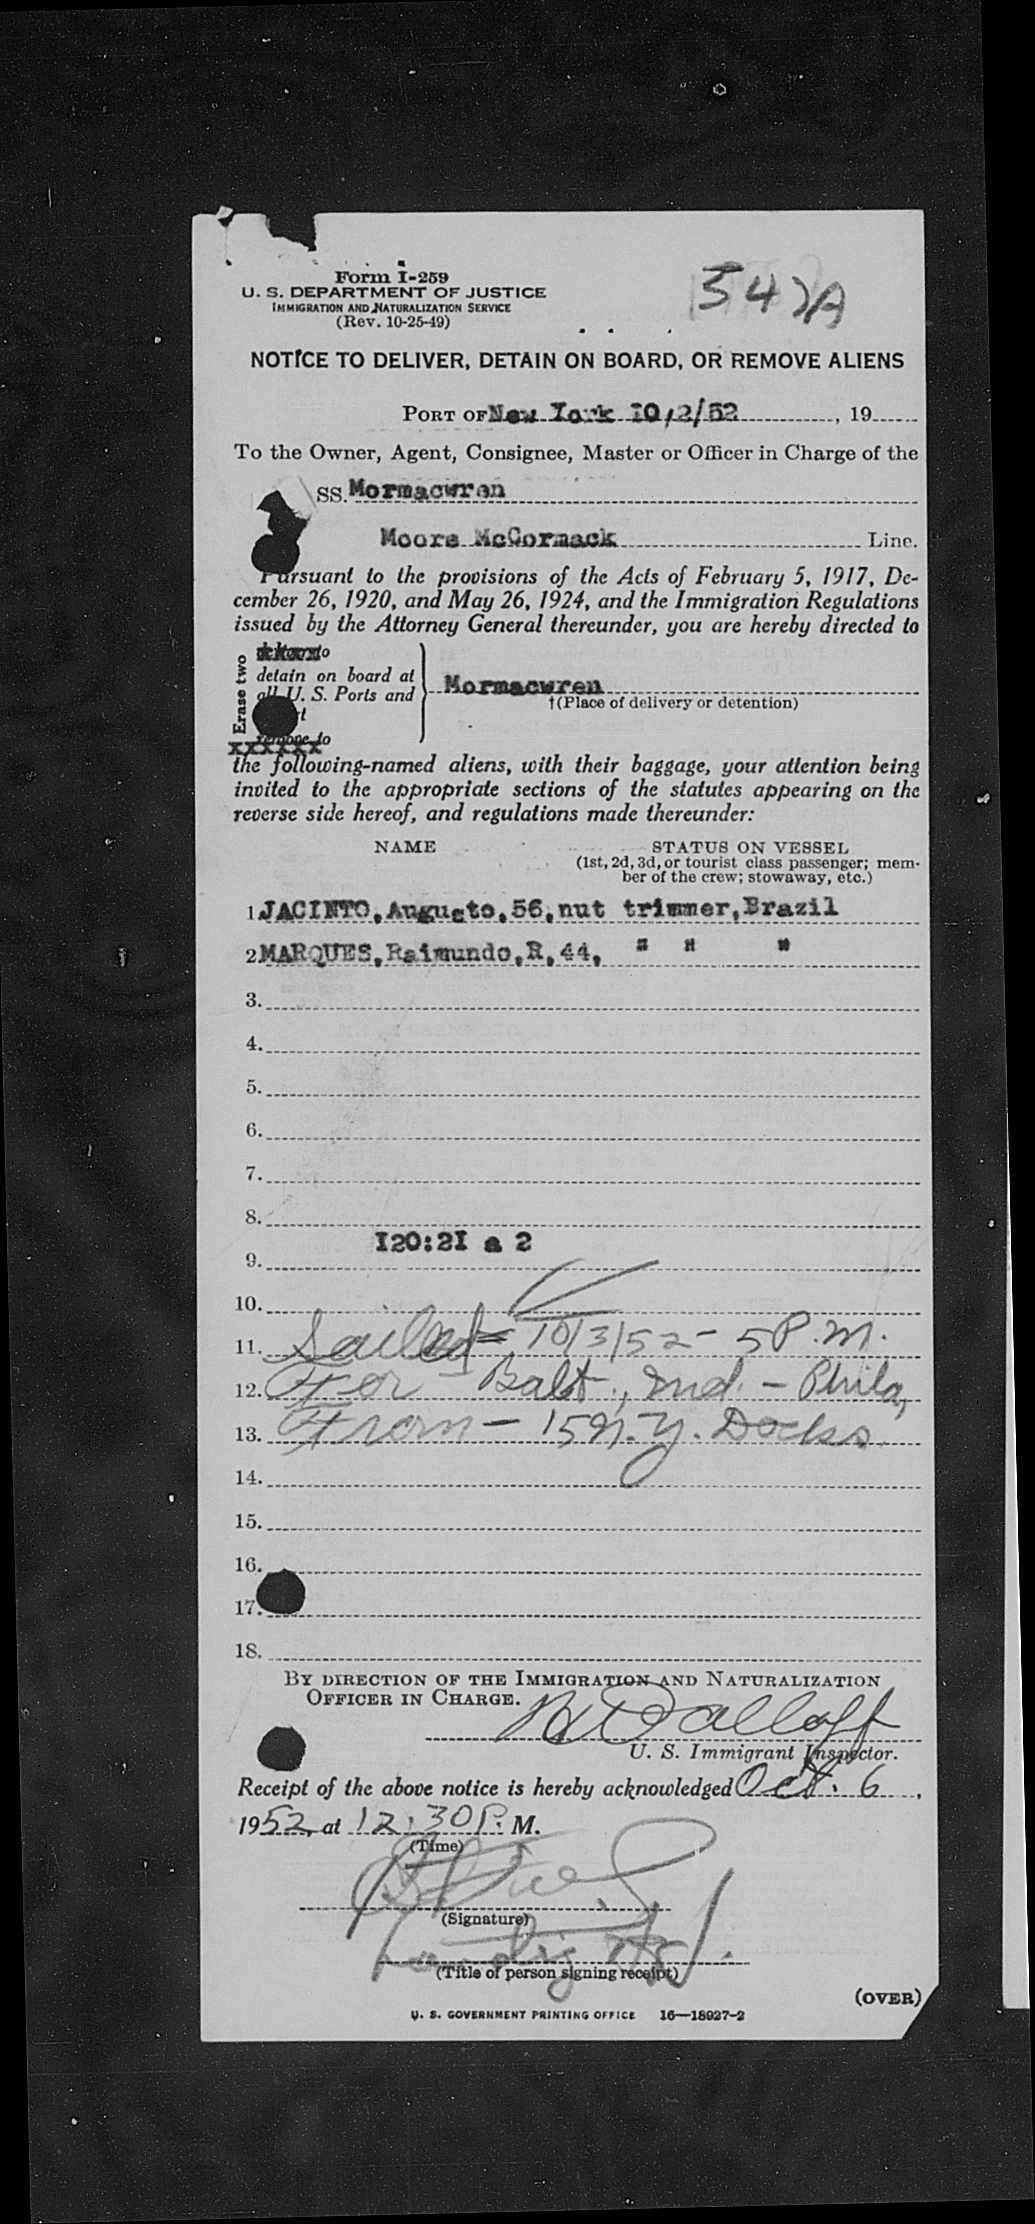 Form I-259
U. S. DEPARTMENT OF JUSTICE
IMMIGRATION AND NATURALIZATION SERVICE
(Rev. 10-25-49)
NOTICE TO DELIVER, DETAIN ON BOARD, OR REMOVE ALIENS
PORT OF New York IO/2/52, 19
To the Owner, Agent, Consignee, Master or Officer in Charge of the
SS. Mormacwren
Moore McCormack Line.
Pursuant to the provisions of the Acts of February 5, 1917, De-
cember 26, 1920, and May 26, 1924, and the Immigration Regulations
issued by the Attorney General thereunder, you are hereby directed to
Erase two
to
detain on board at
all U. S. Ports and
Mormacwren
†(Place of delivery or detention)
remove to
the following-named aliens, with their baggage, your attention being
invited to the appropriate sections of the statutes appearing on the
reverse side hereof, and regulations made thereunder:
NAME STATUS ON VESSEL
(1st, 2d, 3d, or tourist class passenger; mem-
ber of the crew; stowaway, etc.)
1 JACINTO, Augusto, 56, nut trimmer, Brazil
2 MARQUES, Raimundo, R, 44, " " "
3.
4.
5.
6.
7.
8.
I20:2I a 2
9.
10.
11. Sailed - 10/3/52 - 5 P.M.
12. For - Balt., Md. - Phila,
13. From - 15 N.Y. Docks.
14.
15.
16.
17.
18.
BY DIRECTION OF THE IMMIGRATION AND NATURALIZATION
OFFICER IN CHARGE.
U. S. Immigrant Inspector.
Receipt of the above notice is hereby acknowledged Oct. 6,
1952, at 12:30 P. M.
(Time)
(Signature)
(Title of person signing receipt)
(OVER)
U. S. GOVERNMENT PRINTING OFFICE 16—18927-2